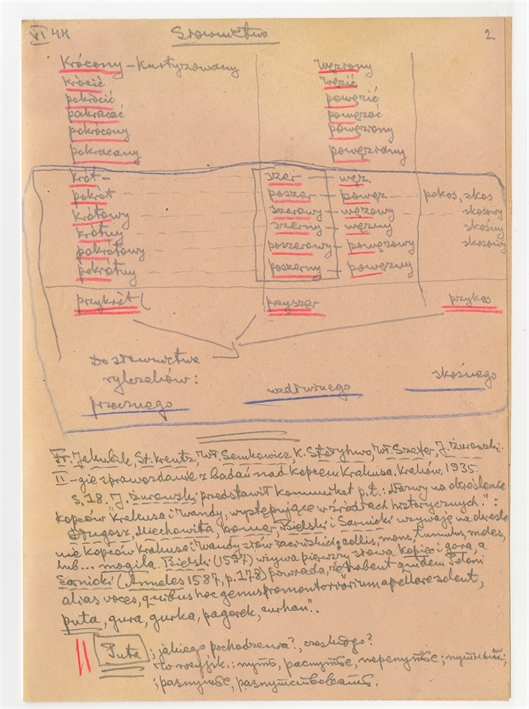 VI 4H Słownictwo 2
Krócony – Kurtyzowany Wężony
krócić węzić
pokrócić powęzić
pokracać powężać
pokrocony powęziony
pokracany powęziony
krót – szer – węz
pokrót poszer – powęz pokos, skos
krótowy szerowy – węzowy skosowy
krótny szerny – węzny skośny
pokrótowy poszerowy – powęzowy skosowy
pokrótny poszerny – powęzny
przykrót ( przyszer przykos
Do słownictwa
rylczaków:
poprzecznego wzdłużnego skośnego
Fr. Jakubik, St. Krentz, Wł. Semkowicz, K. Stołyhwo, W. Szafer, J. Żurowski.
II – gie sprawozdanie z badań nad Kopcem Krakusa, Kraków, 1935.
s. 18. J. Żurowski przedstawił komunikat p.t.: „Nazwy na określenie
kopców Krakusa i Wandy, występujące w źródłach historycznych." :
Długosz, Miechowita, Kromer, Bielski i Sarnicki używają na określe
nie kopców Krakusa i Wandy słów łacińskich; collis, mons, tumulus, moles,
lub... mogiła. Bielski (1597) używa pierwszy słowa kopiec i góra, a
Sarnicki (Annales 1587, p. 178) powiada, że habent quidem Poloni
alias voces, quibus hoc genus promontoriorum apellare solent,
puta, gura, gurka, pagorek, curhan".
Puta ; jakiego pochodzenia?, czeskiego?
w rosyjsk.: